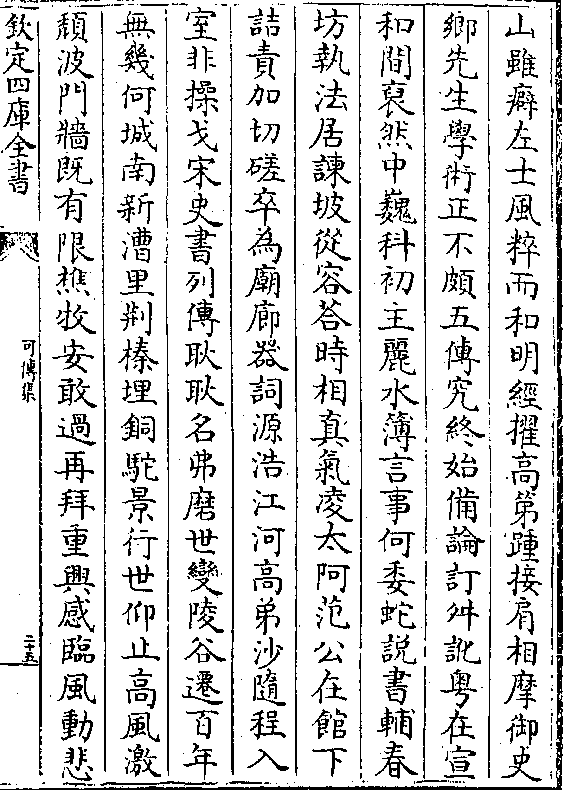 山雖癖左士風粹而和明經擢高第踵接肩相摩御史
鄉先生學術正不頗五傳究終始備論訂舛訛粤在宣
和間裒然中巍科初主麗水簿言事何委蛇説書輔春
坊執法居諫坡從容荅時相真氣凌太阿范公在館下
詰責加切磋卒為廟廊器詞源浩江河高弟沙隨程入
室非操戈宋史書列傳耿耿名弗磨世變陵谷遷百年
無幾何城南新漕里荆榛埋銅駝景行世仰止高風激
頽波門牆既有限樵牧安敢過再拜重興感臨風動悲
欽定四庫全書
可傳集
二十五